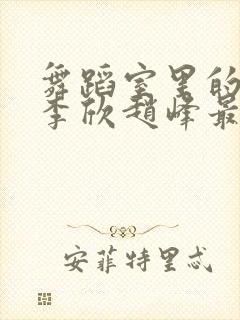 舞蹈室里的
李欣赵峰最
安菲特里忒